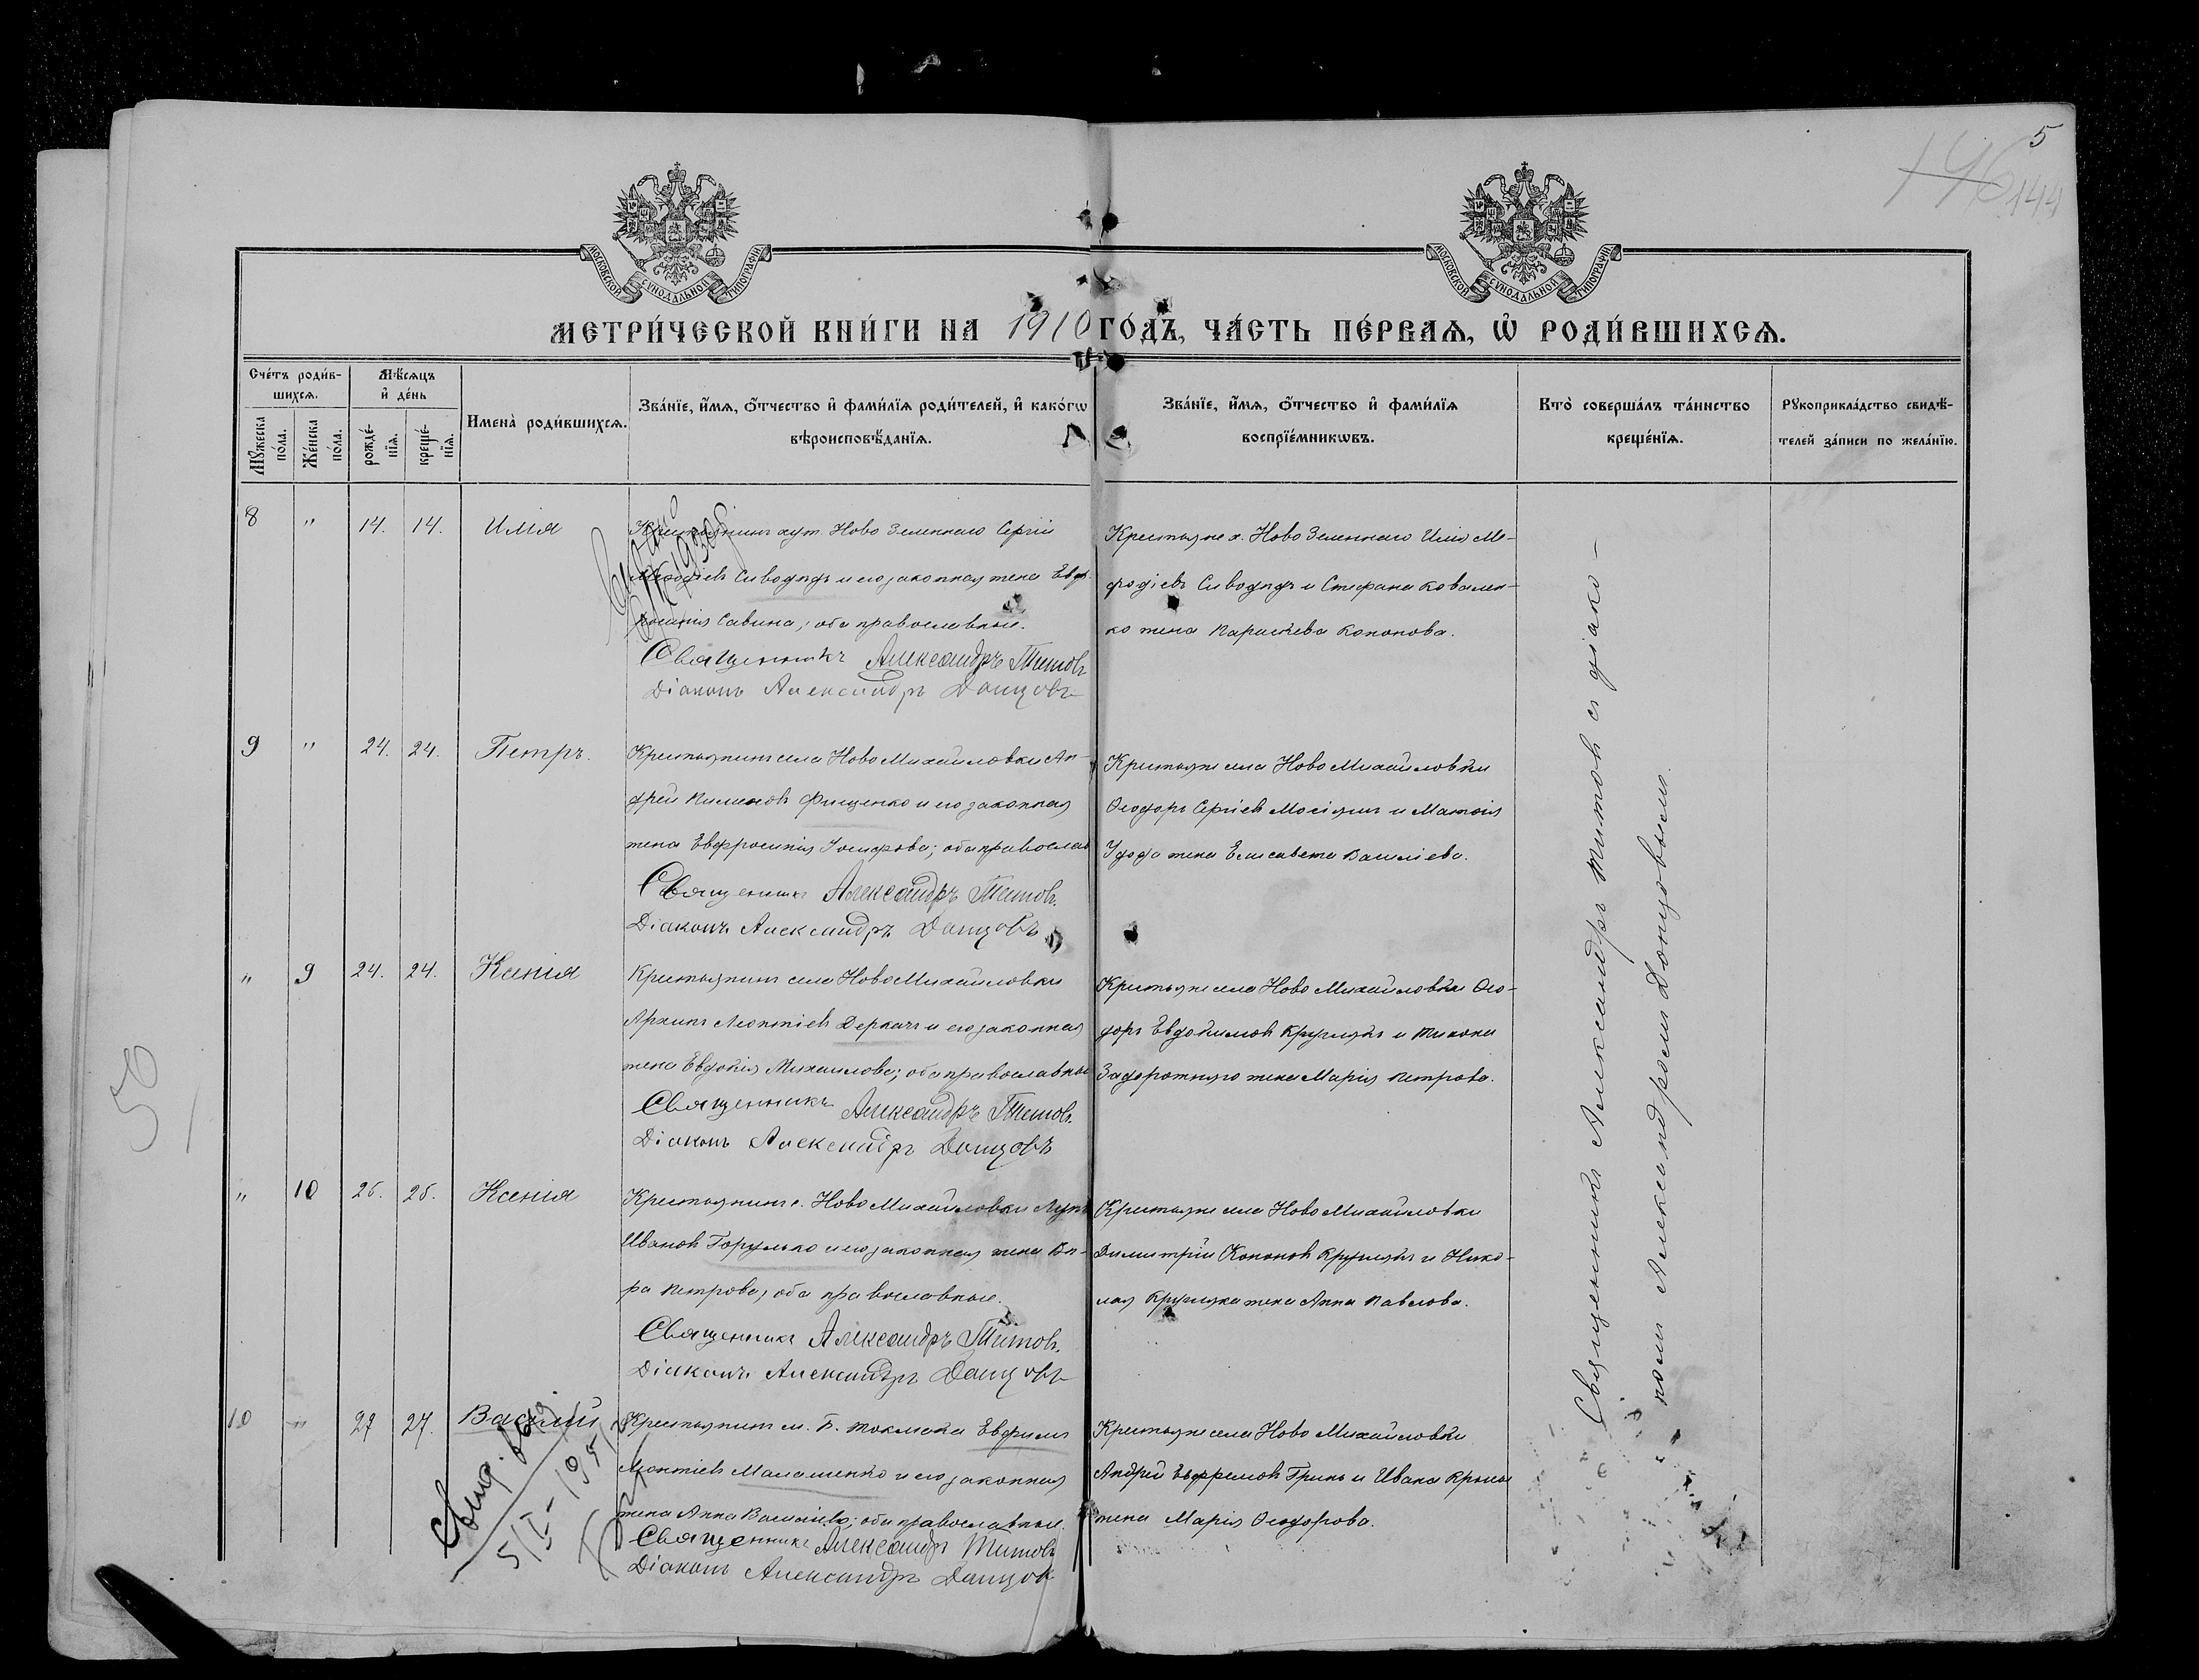 5
146
144
МОСКОВСКОЙ СѴНОДАЛЬНОЙ ТИПОГРАФІИ
МОСКОВСКОЙ СѴНОДАЛЬНОЙ ТИПОГРАФІИ
МЕТРИ́ЧЕСКОЙ КНИ́ГИ НА 1910 ГО́ДЪ, ЧА́СТЬ ПЕ́РВАѦ, Ѡ҆ РОДИ́ВШИХСѦ.
Сче́тъ роди́в-
шихсѧ.
Мѣ́сѧцъ
и҆ де́нь
Мꙋ́жеска
по́ла.
Же́нска
по́ла.
рожде́-
нїѧ.
креще́-
нїѧ.
Имена̀ роди́вшихсѧ.
Зва́нїе, и҆́мѧ, ѻ҆́тчество и҆ фами́лїѧ роди́телей, и҆ како́гѡ
вѣроисповѣ́данїѧ.
Зва́нїе, и҆́мѧ, ѻ҆́тчество и҆ фами́лїѧ
воспрїе́мникѡвъ.
Кто̀ соверша́лъ та́инство
креще́нїѧ.
Рꙋкоприкла́дство свидѣ́-
телей за́писи по жела́нїю.
8 " 14. 14. Илія
Крестьянинъ хут. Ново Зеленнаго Сергій
Меѳодіевъ Сиводидъ и его законная жена Евф-
росинія Савина; оба православные.
Священникъ Александръ Титовъ
Діаконъ Александръ Донцовъ
Крестьяне х. Ново Зеленнаго Илія Ме-
фодіевъ Сиводидъ и Стефана Ковален-
ко жена Параскева Кононова.
9 " 24. 24. Петръ.
Крестьянинъ села Ново Михайловки Ан-
дрей Пименовъ Фищенко и его законная
жена Евфросинія Іосифова; оба православ
Священникъ Александръ Титовъ.
Діаконъ Александръ Донцовъ
Крестьяне села Ново Михайловки
Ѳеодоръ Сергіевъ Мосіянъ и Матѳія
Удода жена Елисавета Василіева.
" 9 24. 24. Ксенія
Крестьянинъ села Ново Михайловки
Архипъ Леонтіевъ Деркачъ и его законная
жена Евдокія Михаилова; оба православные
Священникъ Александръ Титовъ.
Діаконъ Александръ Донцовъ
Крестьяне села Ново Михайловки Ѳео-
доръ Евдокимовъ Круглякъ и Тихона
Задорожняго жена Марія Петрова.
" 10 26. 26. Ксенія
Крестьянинъ с. Ново Михайловки Лупъ
Ивановъ Горулько и его законная жена Вѣ-
ра Петрова; оба православные.
Священникъ Александръ Титовъ.
Діаконъ Александръ Донцовъ
Крестьяне села Ново Михайловки
Димитрій Кононовъ Круглякъ и Нико-
лая Кругляка жена Анна Павлова.
10 " 27 27. Василій
Крестьянинъ м. Б. Токмака Евфимъ
Леонтіевъ Малашенко и его законная
жена Анна Василіева; оба православные.
Священникъ Александръ Титовъ
Діаконъ Александръ Донцовъ
Крестьяне села Ново Михайловки
Андрей Ефремовъ Гринь и Ивана
жена Марія Ѳеодорова.
Священникъ Александръ Титовъ съ діако-
номъ Александромъ Донцовымъ.
50